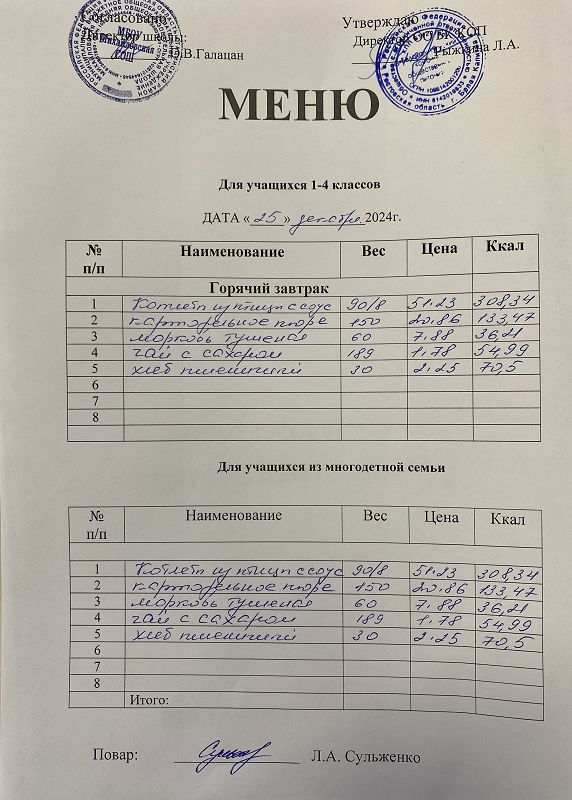 Согласовано Утверждаю
Директор школы: Директор ООО К ОП
О.В.Галацан Рыжкина Л.А.
МЕНЮ
Для учащихся 1-4 классов
ДАТА «25» декабря 2024г.
№ п/п Наименование Вес Цена Ккал
Горячий завтрак
1 Котлета из птицы с соус 90/8 51.23 308,34
2 картофельное пюре 150 20.86 133,47
3 морковь тушеная 60 7.88 36,21
4 чай с сахаром 189 1.78 54,99
5 хлеб пшеничный 30 2.25 70,5
6
7
8
Для учащихся из многодетной семьи
№ п/п Наименование Вес Цена Ккал
1 Котлета из птицы с соус 90/8 51.23 308,34
2 картофельное пюре 150 20.86 133,47
3 морковь тушеная 60 7.88 36,21
4 чай с сахаром 189 1.78 54,99
5 хлеб пшеничный 30 2.25 70,5
6
7
8
Итого:
Повар: Л.А. Сульженко